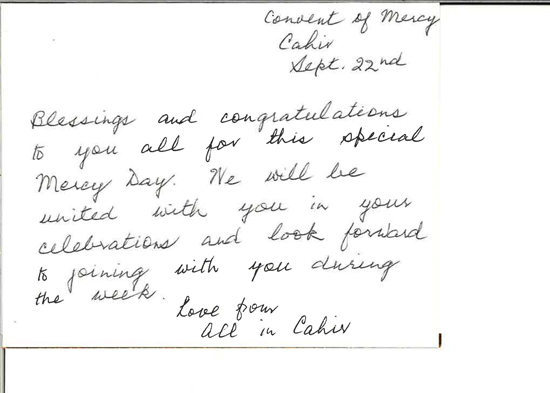 Convent of Mercy
Cahir
Sept. 22nd
Blessings and congratulations
to you all for this special
Mercy Day. We will be
united with you in your
celebrations and look forward
to joining with you during
the week.
Love from
all in Cahir